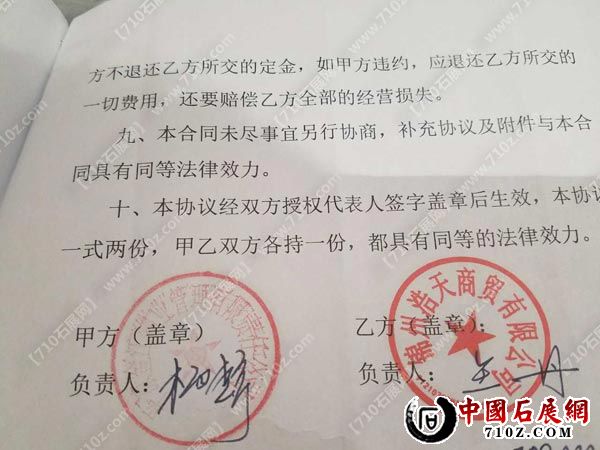 方不退还乙方所交的定金，如甲方违约，应退还乙方所交的
一切费用，还要赔偿乙方全部的经营损失。
九、本合同未尽事宜另行协商，补充协议及附件与本合
同具有同等法律效力。
十、本协议经双方授权代表人签字盖章后生效，本协议
一式两份，甲乙双方各持一份，都具有同等的法律效力。
甲方（盖章）
乙方（盖章）：
锦州浩天商贸有限公司
负责人：
负责人：王丹
中國石展網
710z.COM
【710石展网】
www.710z.com